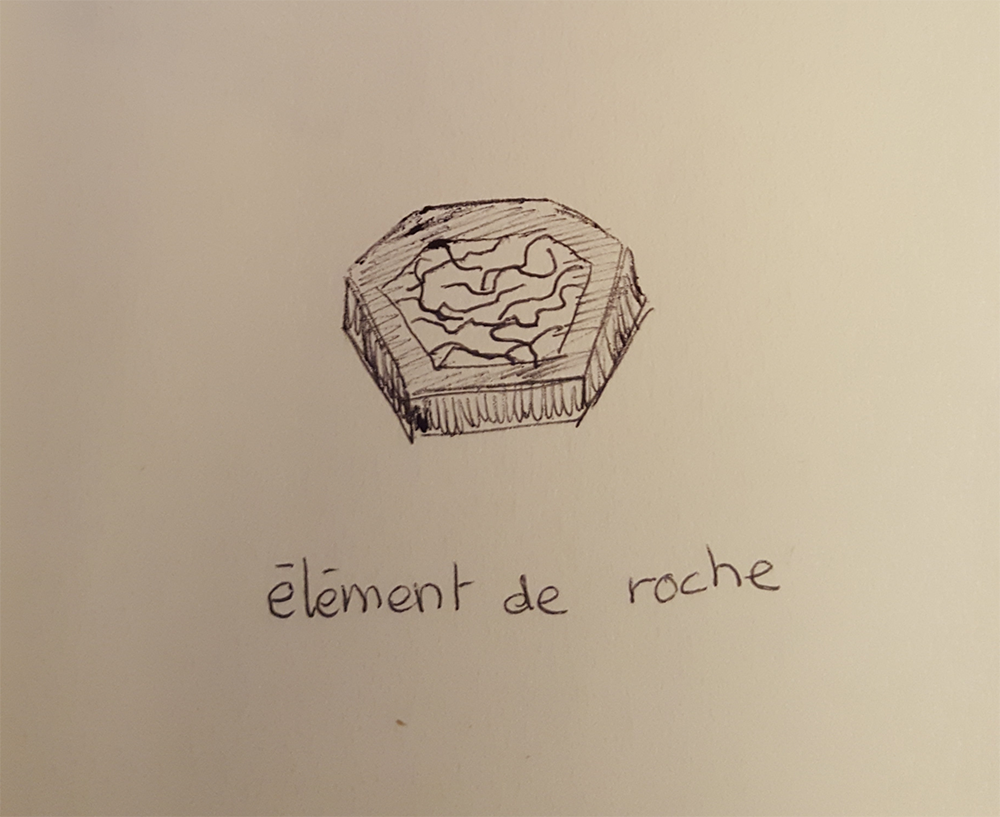 élément de roche